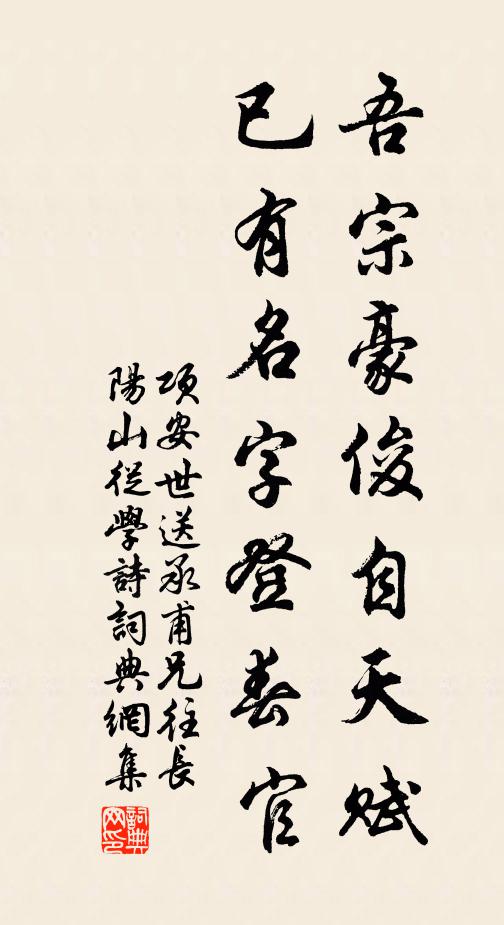 吾宗豪俊自天賦
已有名字登春官
項安世送承甫兄往長
陽山從學詩詞典網集
詞典網印